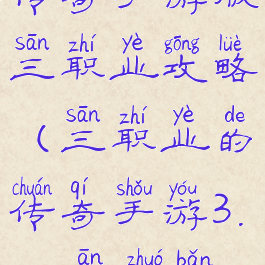 传奇手游版
sān zhí yè gōng lüè
三职业攻略
sān zhí yè de
（三职业的
chuán qí shǒu yóu
传奇手游3.
ān zhuó bǎn